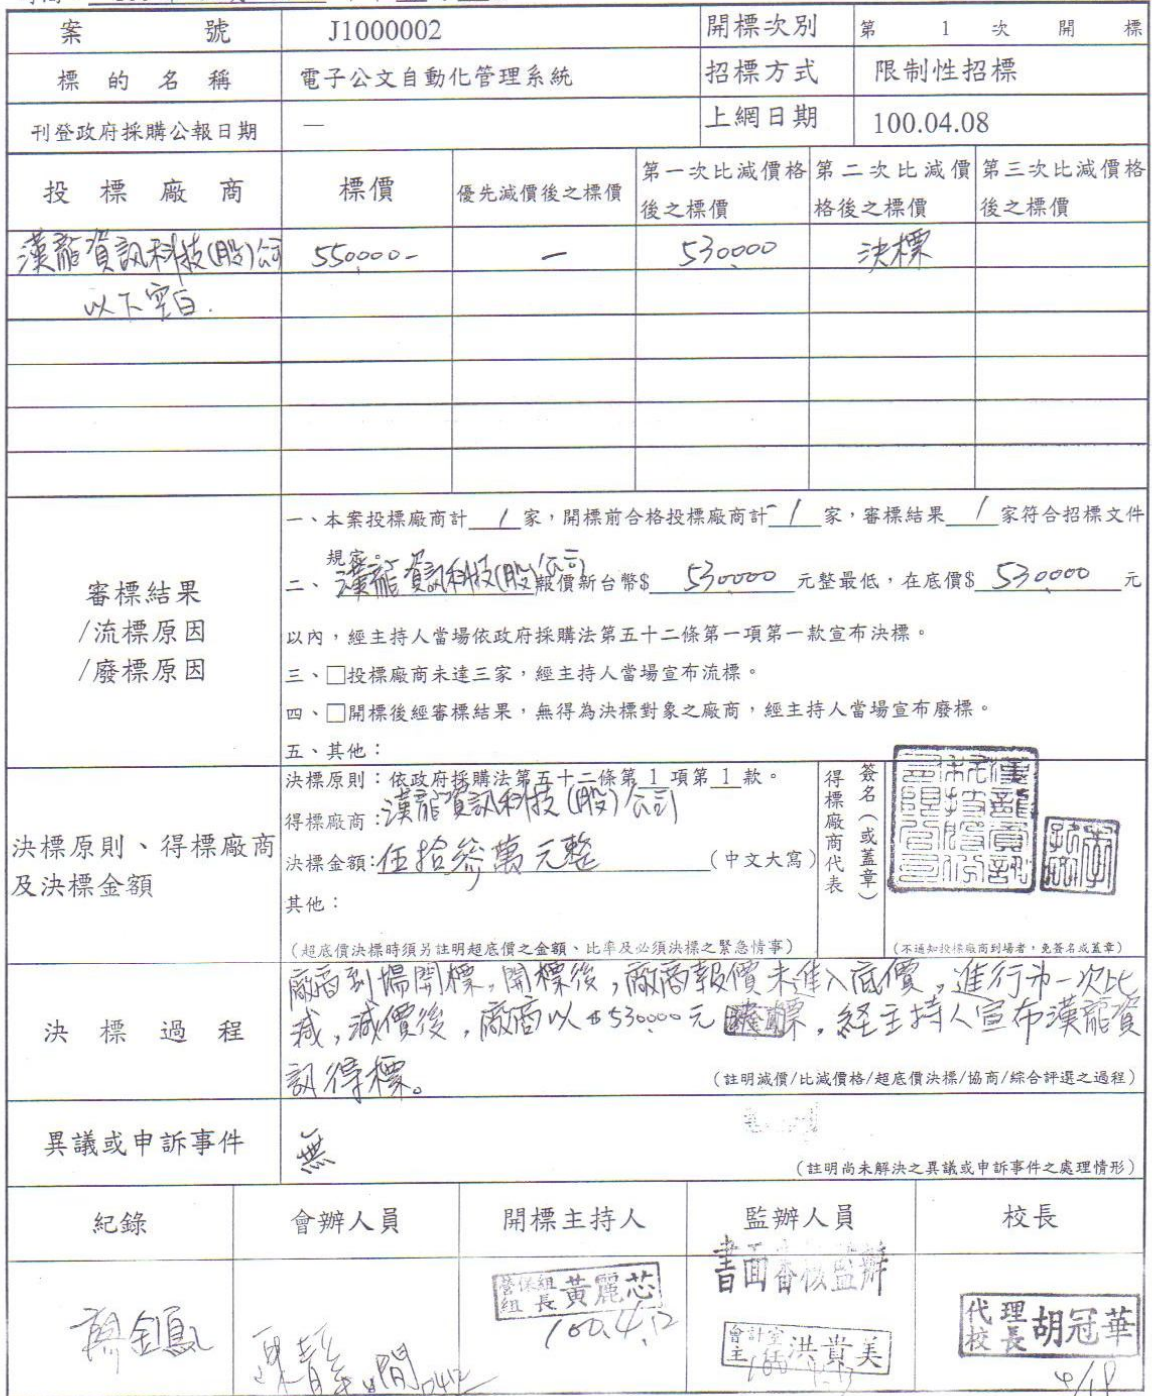 案 號 J1000002 開標次別 第 1 次 開 標
標 的 名 稱 電子公文自動化管理系統 招標方式 限制性招標
刊登政府採購公報日期 — 上網日期 100.04.08
投 標 廠 商 標價 優先減價後之標價 第一次比減價格後之標價 第二次比減價格後之標價 第三次比減價格後之標價
漢龍資訊科技(股)公司 550000- — 530000 決標
以下空白.
審標結果
/流標原因
/廢標原因
一、本案投標廠商計 1 家,開標前合格投標廠商計 1 家,審標結果 1 家符合招標文件
規定。
二、漢龍資訊科技(股)公司報價新台幣$ 530000 元整最低,在底價$ 530000 元
以內,經主持人當場依政府採購法第五十二條第一項第一款宣布決標。
三、□投標廠商未達三家,經主持人當場宣布流標。
四、□開標後經審標結果,無得為決標對象之廠商,經主持人當場宣布廢標。
五、其他:
決標原則、得標廠商
及決標金額
決標原則:依政府採購法第五十二條第 1 項第 1 款。
得標廠商:漢龍資訊科技(股)公司
決標金額:伍拾參萬元整(中文大寫)
其他:
(超底價決標時須另註明超底價之金額、比率及必須決標之緊急情事)
得標廠商代表
簽名(或蓋章)
(不通知投標廠商到場者,免簽名或蓋章)
決 標 過 程
廠商到場開標,開標後,廠商報價未進入底價,進行第一次比
減,減價後,廠商以$530000元 標,經主持人宣布漢龍資
訊得標。
(註明減價/比減價格/超底價決標/協商/綜合評選之過程)
異議或申訴事件 無
(註明尚未解決之異議或申訴事件之處理情形)
紀錄 會辦人員 開標主持人 監辦人員 校長
書面審核監辦
營保組組長 黃麗芯
100.4.12
會計室主任 洪貴美
代理校長 胡冠華